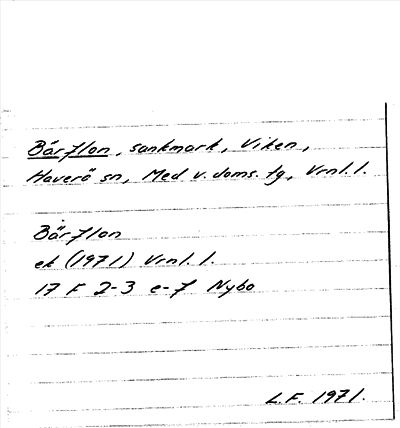 Bärflon, sankmark, Viken,
Haverö sn, Med v. doms. tg, Vrnl. l.
Bärflon
ek (1971) Vrnl. l.
17 F 2-3 e-f Nybo
L.F. 1971.